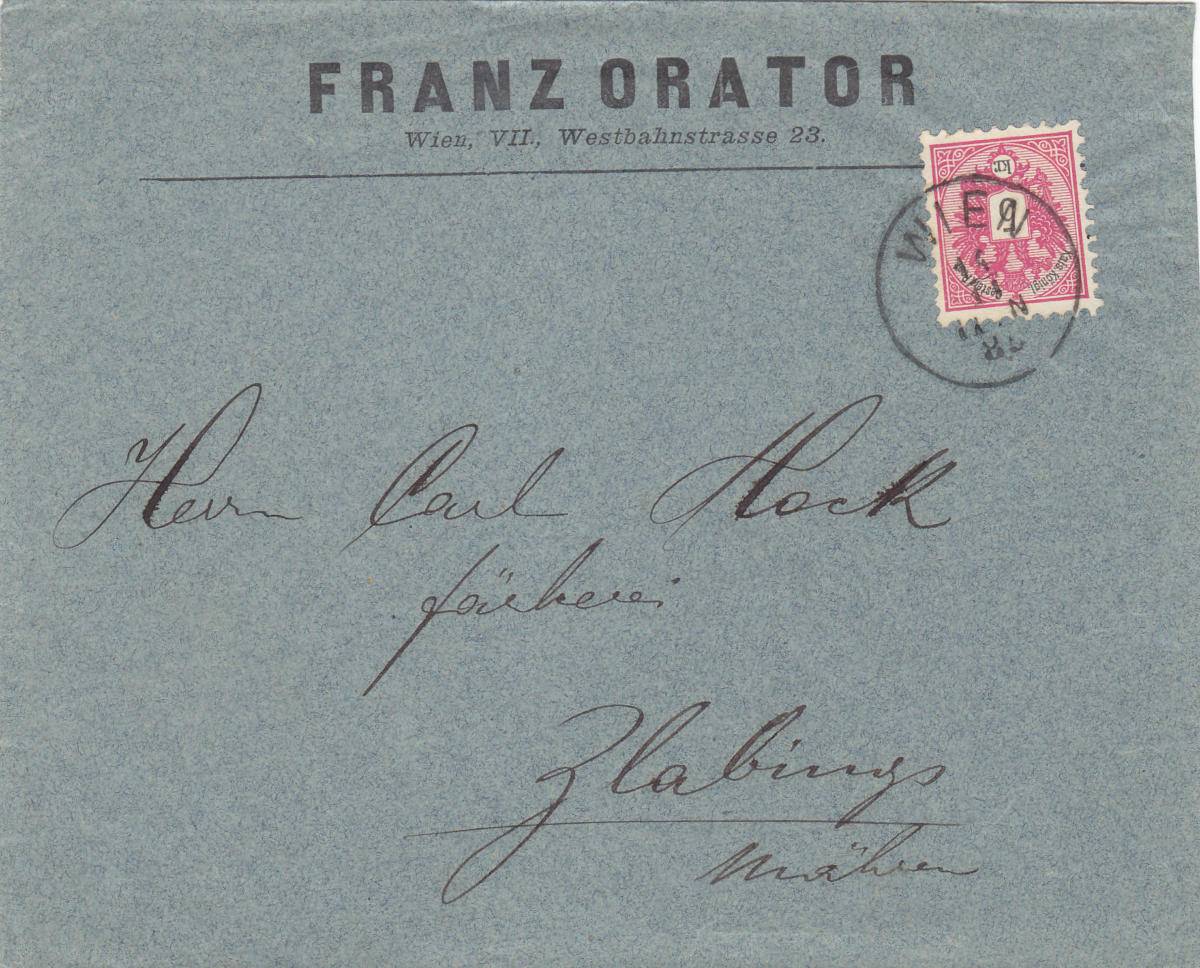 FRANZ ORATOR
Wien, VII., Westbahnstrasse 23.
kr.
5
Kais. Königl.
WIEN
Herrn Carl Hock
färberei
Zlabings
Mähren